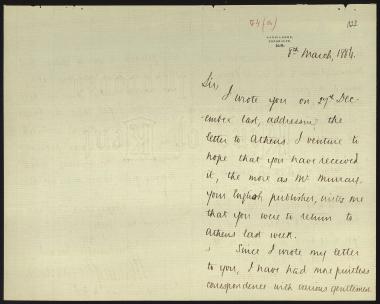 54(a)
122
8th March, 1884.
Sir,
I wrote you on 27th Dec-
ember last, addressing the
letter to Athens. I venture to
hope that you have received
it, the more as Mr Murray,
your English publisher, writes me
that you were to return to
Athens last week.
Since I wrote my letter
to you, I have had more
correspondence with various gentlemen